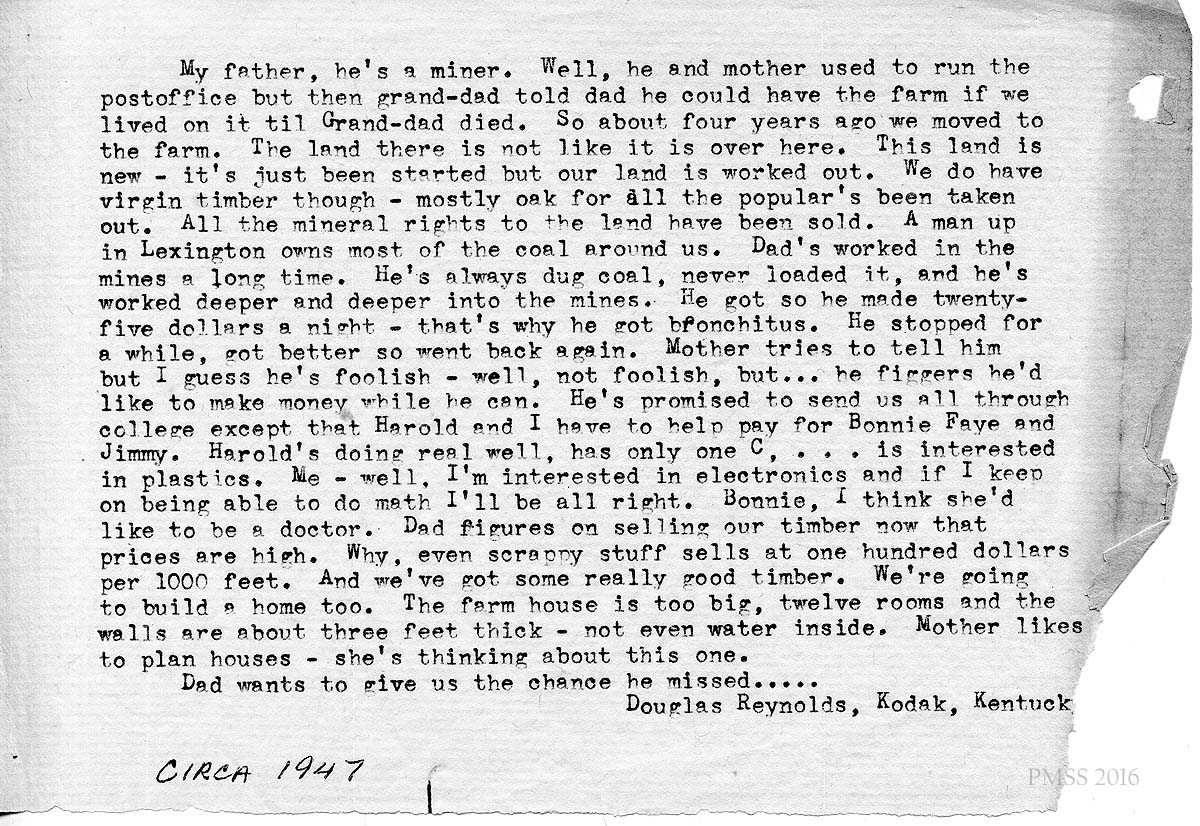 My father, he's a miner. Well, he and mother used to run the
postoffice but then grand-dad told dad he could have the farm if we
lived on it til Grand-dad died. So about four years ago we moved to
the farm. The land there is not like it is over here. This land is
new - it's just been started but our land is worked out. We do have
virgin timber though - mostly oak for all the popular's been taken
out. All the mineral rights to the land have been sold. A man up
in Lexington owns most of the coal around us. Dad's worked in the
mines a long time. He's always dug coal, never loaded it, and he's
worked deeper and deeper into the mines. He got so he made twenty-
five dollars a night - that's why he got bronchitus. He stopped for
a while, got better so went back again. Mother tries to tell him
but I guess he's foolish - well, not foolish, but... he figgers he'd
like to make money while he can. He's promised to send us all through
college except that Harold and I have to help pay for Bonnie Faye and
Jimmy. Harold's doing real well, has only one C, . . . is interested
in plastics. Me - well, I'm interested in electronics and if I keep
on being able to do math I'll be all right. Bonnie, I think she'd
like to be a doctor. Dad figures on selling our timber now that
prices are high. Why, even scrappy stuff sells at one hundred dollars
per 1000 feet. And we've got some really good timber. We're going
to build a home too. The farm house is too big, twelve rooms and the
walls are about three feet thick - not even water inside. Mother likes
to plan houses - she's thinking about this one.
Dad wants to give us the chance he missed.....
Douglas Reynolds, Kodak, Kentuck
CIRCA 1947
PMSS 2016